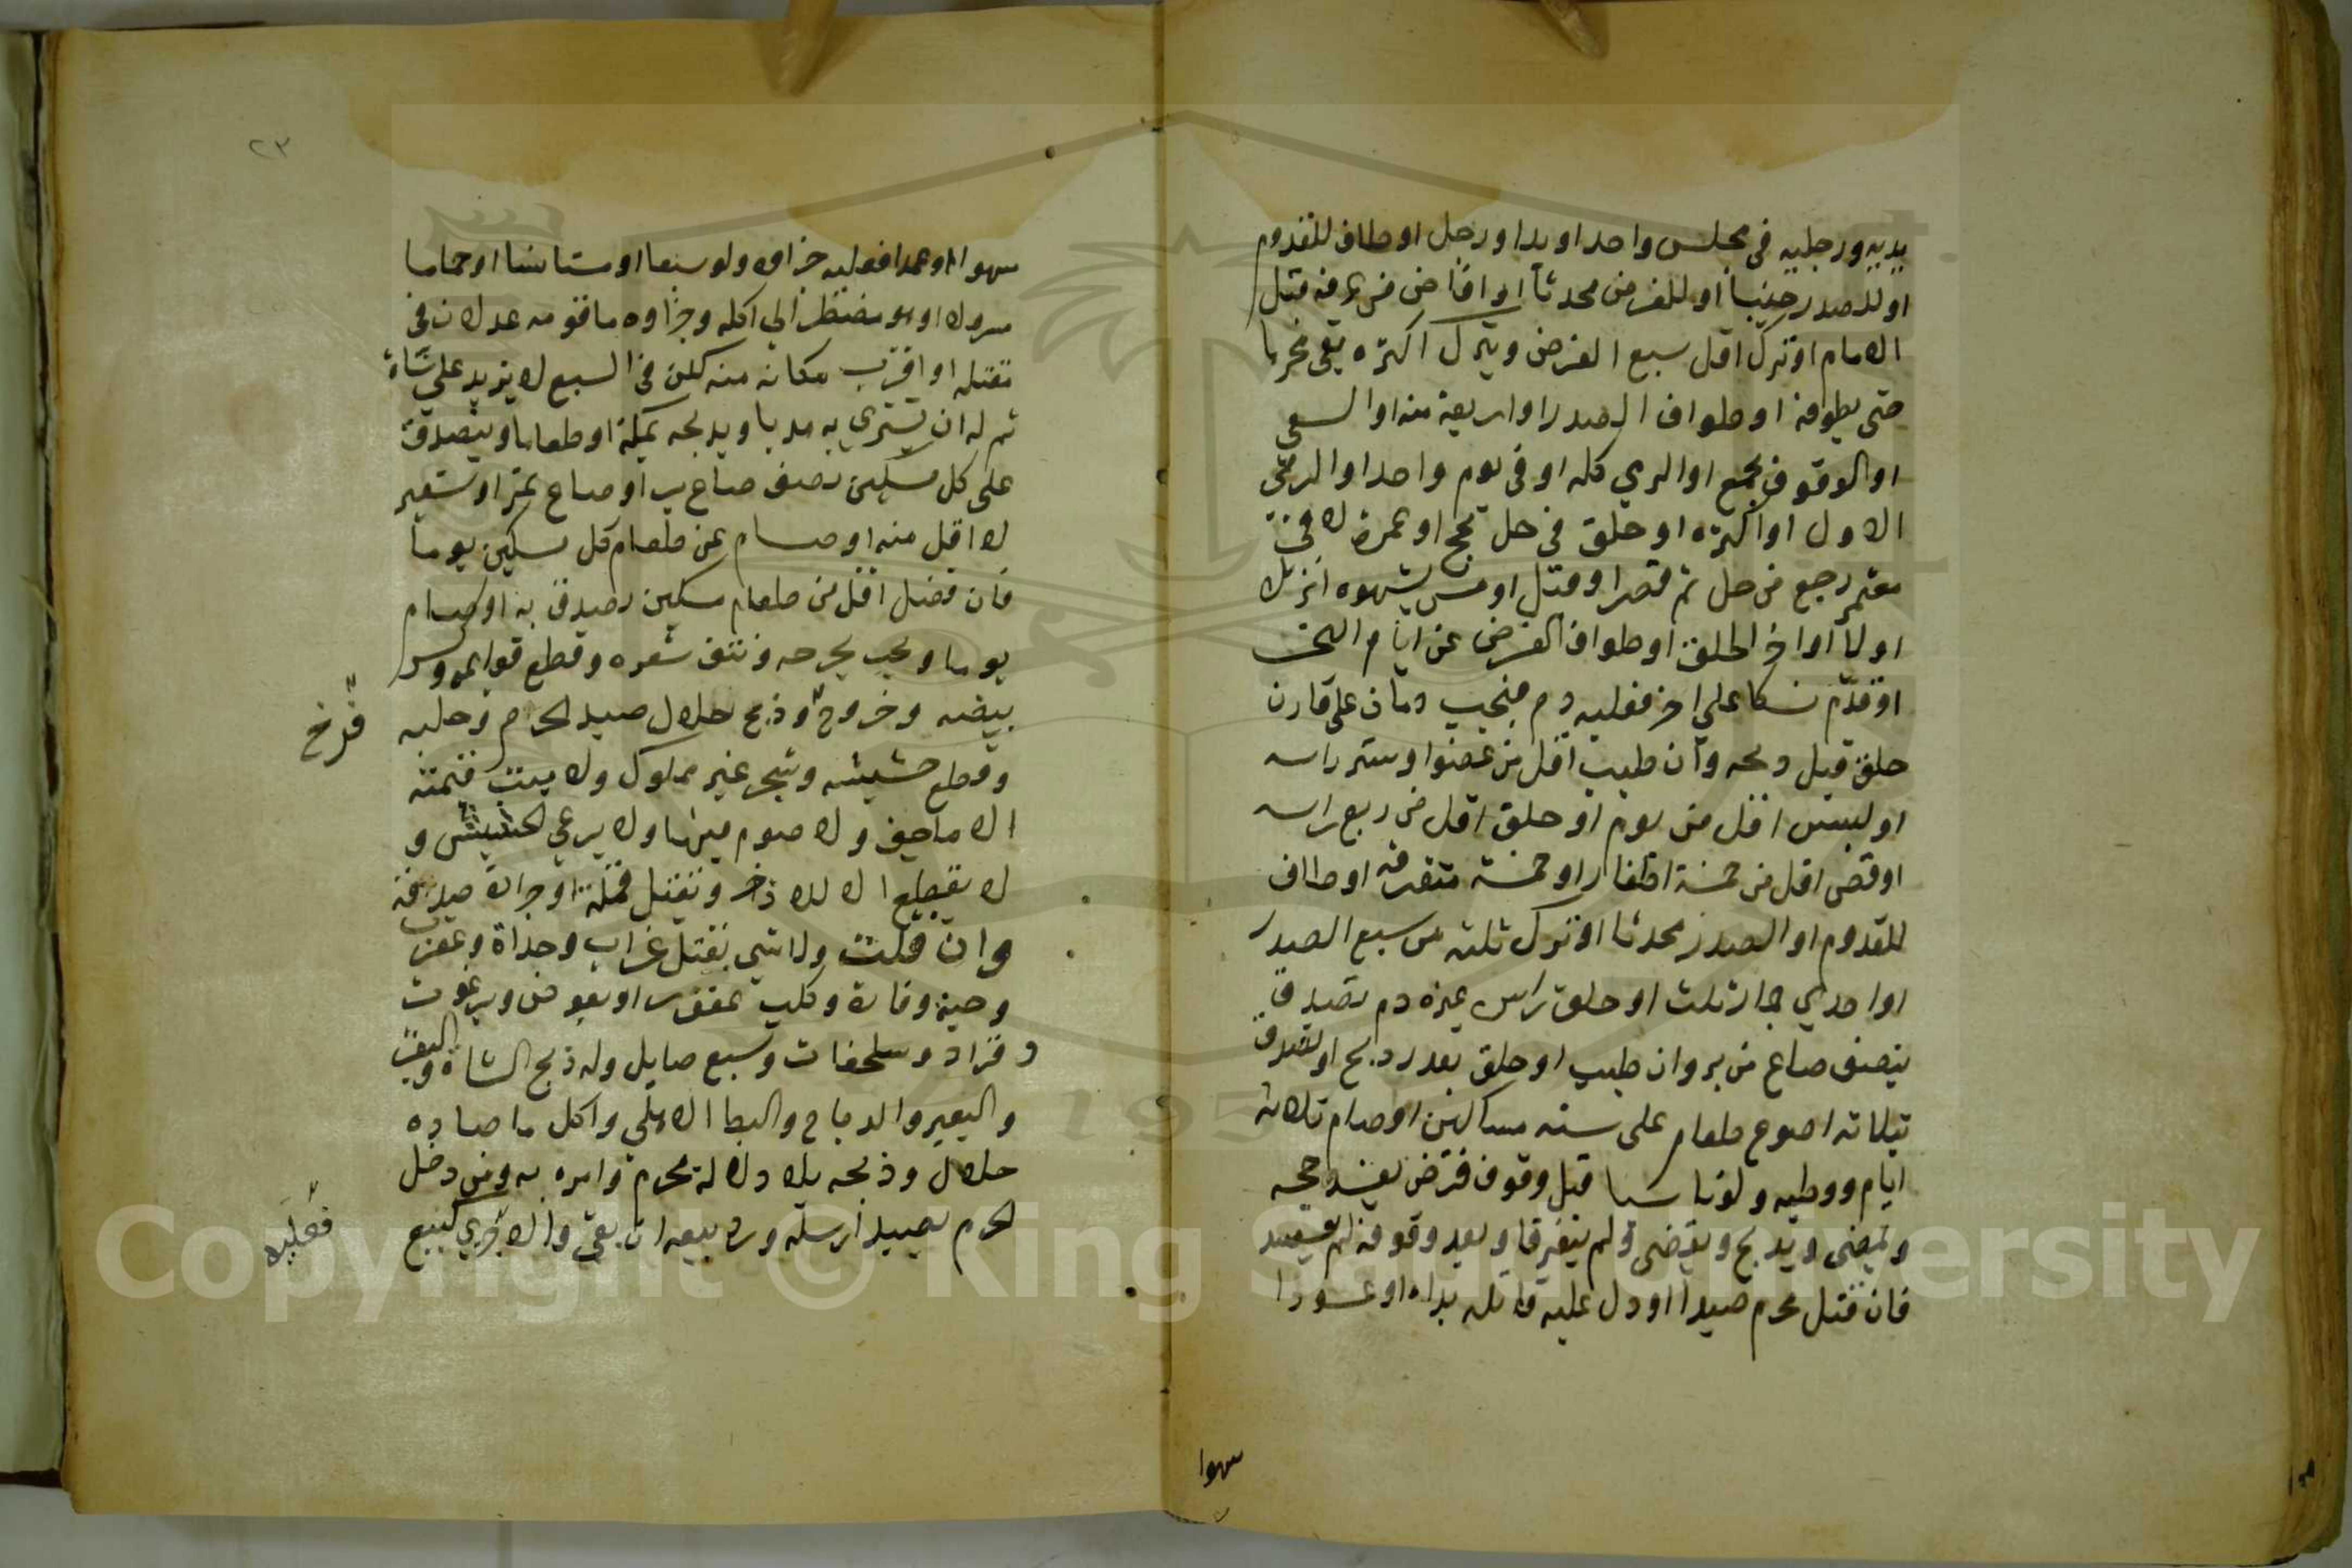 يديه ورجليه في مجلس واحد او يدا او رجل او طاف للقدوم
او للصدر جنبا او للفرض محدثا او افاض من عرفه قبل
الامام او ترك اقل سبع الفرض وبترك اكثره بقى محرما
حتى يطوفه او طواف الصدر او اربعة منه او السعي
او الوقوف بجمع او الرمي كله او في يوم واحد او الرمي
الاول او اكثره او حلق في حل بحج او عمرة لا في
معتمر رجع من حل ثم قصر او قبل او مس بشهوه انزل
او لا او اخر الحلق او طواف الفرض عن ايام النحر
او قدم نسكا على اخر فعليه دم فيجب دمان على قارن
حلق قبل ذبحه وان طيب اقل من عضو او ستر راسه
او لبس اقل من يوم او حلق اقل من ربع راسه
او قص اقل من خمسة اظفار او خمسه متفرقه او طاف
للقدوم او الصدر محدثا او ترك ثلثه من سبع الصدر
او احدي جمار ثلث او حلق راس غيره دم تصدق
بنصف صاع من بر وان طيب او حلق بعذر ذبح او تصدق
بثلاثه اصوع طعام على سته مساكين او صام ثلاثه
ايام ووطيه ولو ناسيا قبل وقوف فرض يفسد حجه
ويمضى ويذبح ويقضى ولم يتفرقا وبعد وقوفه لم يفسد
فان قتل محرم صيدا او دل عليه قاتله بداه او عودا
سهوا
٢٣
سهوا او عمدا فعليه جزاوه ولو سبعا او مستانسا او حماما
مسرولا او هو مضطر الي اكله وجزاوه ما قومه عدلان في
مقتله او اقرب مكانه منه لكن في السبع لا يزيد على شاة
ثم له ان يشتري به هديا ويذبحه بمكة او طعاما ويتصدق
على كل مسكين نصف صاع بر او صاع تمر او شعير
لا اقل منه او صام عن طعام كل مسكين يوما
فان فضل اقل من طعام مسكين تصدق به او صام
يوما ويجب بجرحه ونتف شعره وقطع قوايمه وكسر
بيضه وخروج وذبح حلال صيد الحرم وحلبه
فرخ
وقطع حشيشه وشجر غير مملوك ولا منبت قيمته
الا ما جف ولا صوم فيها ولا يرعي الحشيش و
لا يقطع الا الاذخر وبقتل قملة او جرادة صدقة
وان قلت ولا شي بقتل غراب وحداة وعقرب
وحية وفارة وكلب عقور او بعوض وبرغوث
وقراد وسلحفات وسبع صايل وله ذبح الشاة والبقر
والبعير والدجاج والبط الاهلي واكل ما صاده
حلال وذبحه بلا دلالة محرم وامره به ومن دخل
الحرم بصيد ارسله ورد بيعه ان بقي والا جزي كبيع
فعليه